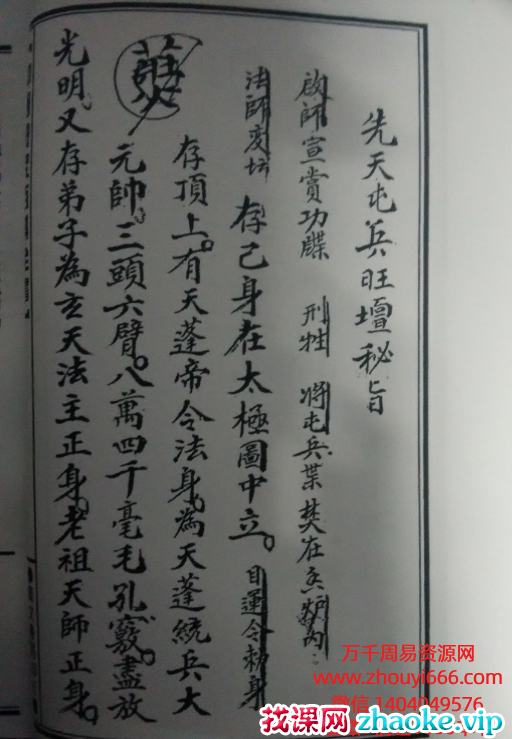 先天屯兵旺壇秘旨
啟師宣賞功牒 刑牲 將屯兵牒焚在香爐內
法師変坛 存己身在太極圖中立。目運令勅身
存頂上。有天蓬帝令法身。為天蓬統兵大
元帥。三頭六臂。八萬四千毫毛孔竅。盡放
光明。又存弟子為玄天法主正身。老祖天師正身。
万千周易资源网
www.zhouyi666.com
微信 1404049576
找课网zhaoke.vip